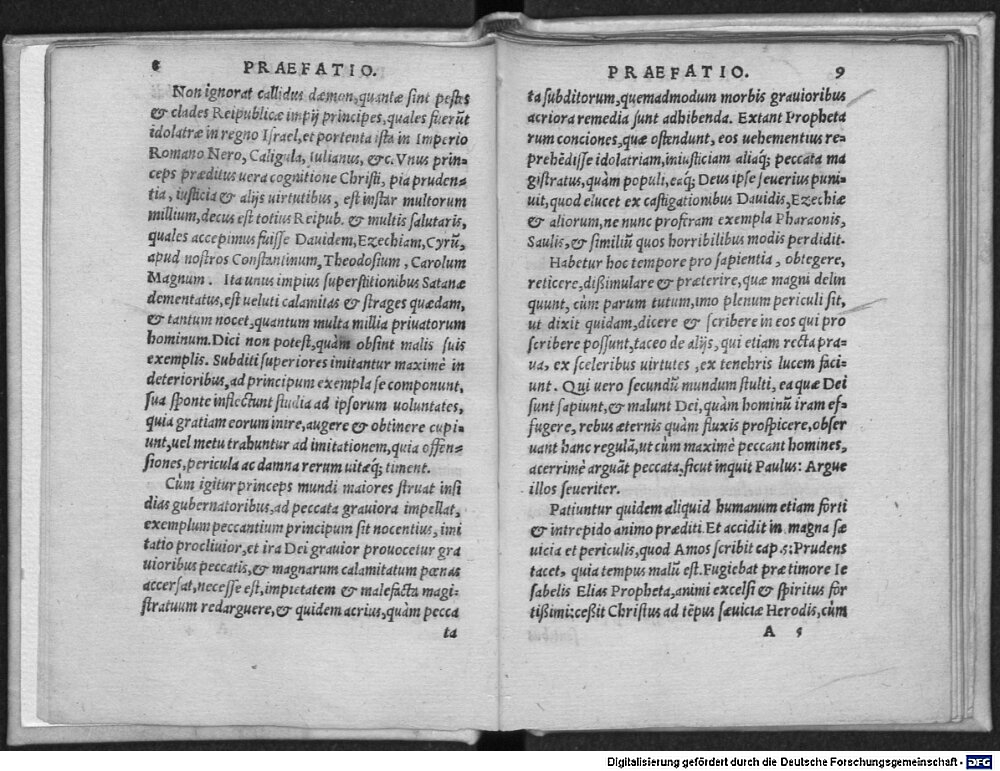 8 PRAEFATIO.
Non ignorat callidus dæmon, quantæ sint pestes
& clades Reipublicæ impij principes, quales fuerũt
idolatræ in regno Israel, et portenta ista in Imperio
Romano Nero, Caligula, Iulianus, &c. Vnus prin-
ceps præditus uera cognitione Christi, pia pruden-
tia, iusticia & alijs uirtutibus, est instar multorum
millium, decus est totius Reipub. & multis salutaris,
quales accepimus fuisse Dauidem, Ezechiam, Cyrũ,
apud nostros Constantinum, Theodosium, Carolum
Magnum. Ita unus impius superstitionibus Satanæ
dementatus, est ueluti calamitas & strages quædam,
& tantum nocet, quantum multa millia priuatorum
hominum. Dici non potest, quàm obsint malis suis
exemplis. Subditi superiores imitantur maximè in
deterioribus, ad principum exempla se componunt,
sua sponte inflectunt studia ad ipsorum uoluntates,
quia gratiam eorum inire, augere & obtinere cupi-
unt, uel metu trahuntur ad imitationem, quia offen-
siones, pericula ac damna rerum uitæq́; timent.
Cùm igitur princeps mundi maiores struat insi
dias gubernatoribus, ad peccata grauiora impellat,
exemplum peccantium principum sit nocentius, imi
tatio procliuior, et ira Dei grauior prouocetur gra
uioribus peccatis, & magnarum calamitatum pœnas
accersat, necesse est, impietatem & malefacta magi-
stratuum redarguere, & quidem acrius, quàm pecca
ta
PRAEFATIO. 9
ta subditorum, quemadmodum morbis grauioribus
acriora remedia sunt adhibenda. Extant Propheta
rum conciones, quæ ostendunt, eos uehementius re-
prehẽdisse idolatriam, iniusticiam aliaq́; peccata ma
gistratus, quàm populi, eaq́; Deus ipse seuerius puni-
uit, quod elucet ex castigationibus Dauidis, Ezechiæ
& aliorum, ne nunc proferam exempla Pharaonis,
Saulis, & similiũ quos horribilibus modis perdidit.
Habetur hoc tempore pro sapientia, obtegere,
reticere, dißimulare & præterire, quæ magni delin
quunt, cùm parum tutum, imo plenum periculi sit,
ut dixit quidam, dicere & scribere in eos qui pro
scribere possunt, taceo de alijs, qui etiam recta pra-
ua, ex sceleribus uirtutes, ex tenebris lucem faci-
unt. Qui uero secundũ mundum stulti, ea quæ Dei
sunt sapiunt, & malunt Dei, quàm hominũ iram ef-
fugere, rebus æternis quàm fluxis prospicere, obser
uant hanc regulã, ut cùm maximè peccant homines,
acerrimè arguãt peccata, sicut inquit Paulus: Argue
illos seueriter.
Patiuntur quidem aliquid humanum etiam forti
& intrepido animo præditi. Et accidit in magna sæ
uicia et periculis, quod Amos scribit cap. 5: Prudens
tacet, quia tempus malũ est. Fugiebat præ timore Ie
sabelis Elias Propheta, animi excelsi & spiritus for
tißimi: ceßit Christus ad tẽpus sæuiciæ Herodis, cùm
A 5
Digitalisierung gefördert durch die Deutsche Forschungsgemeinschaft - DFG